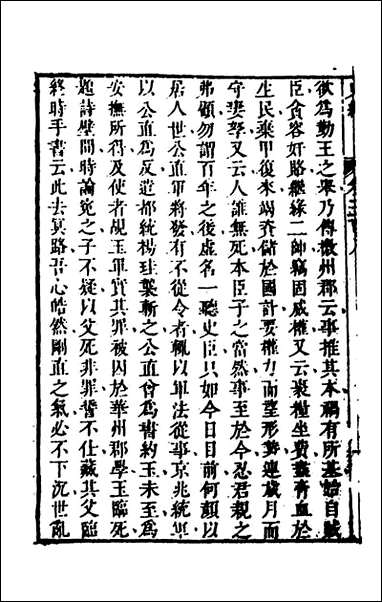 欲為勤王之舉乃傳檄州郡云事推其本禍有所基始自賊
臣貪容奸賂繼緣二帥竊固威權又云聚糧坐費盡膏血於
生民棄甲復來竭資儲於國計要權力而望形勢連歲月而
守妻孥又云人誰無死本臣子之當然事至於今忍君親之
弗顧勿謂百年之後虛名一聽史臣只如今日目前何顏以
居人世公直軍將發有不從令者輒以軍法從事京兆統軍
以公直為反遣都統楊珪襲斬之公直曾為書約玉未至為
安撫所得及使者覘玉軍實其罪被囚於華州郡學玉臨死
題詩壁間時論冤之子不疑以父死非罪誓不仕藏其父臨
終時手書云此去冥路吾心皓然剛直之氣必不下沉世亂